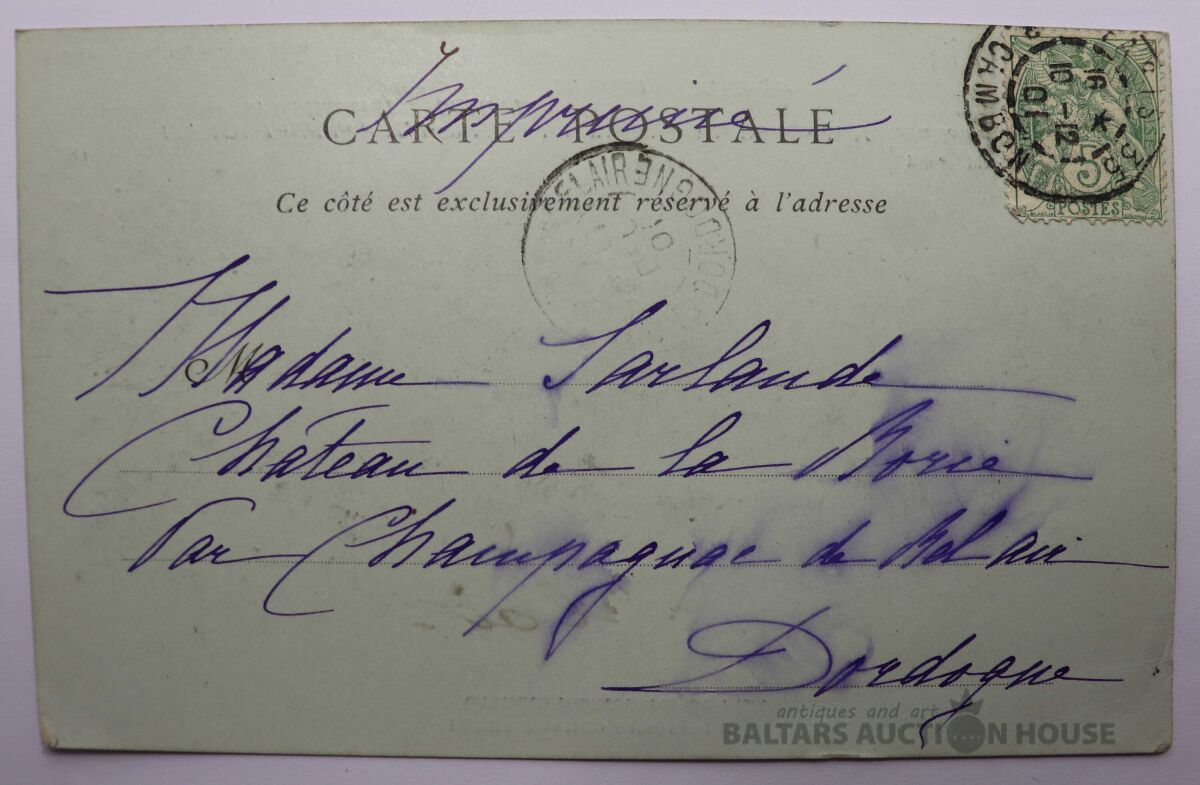 Imprimé
CARTE POSTALE
Ce côté est exclusivement réservé à l'adresse
5
POSTES
16 -12
01
DORDOGNE
M
Madame Sarlande
Château de la Borie
Par Champagnac de Bel air
Dordogne
antiques and art
BALTARS AUCTION HOUSE